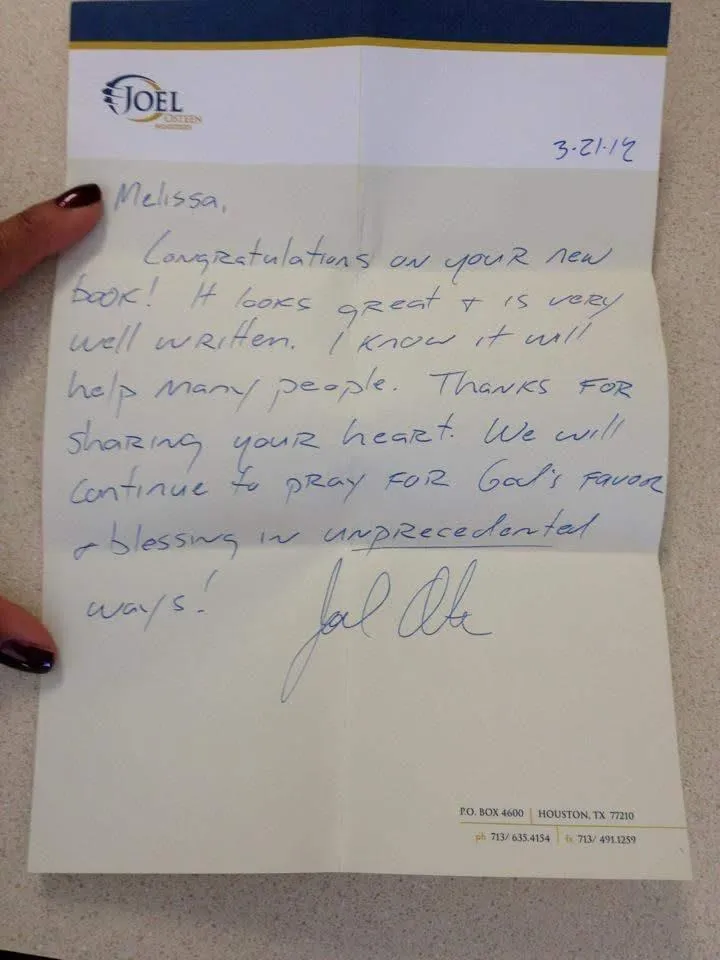 JOEL
OSTEEN
MINISTRIES
3.21.14
Melissa,
Congratulations on your new
book! It looks great + is very
well written. I know it will
help many people. Thanks for
sharing your heart. We will
continue to pray for God's favor
+ blessing in unprecedented
ways!
Joel Osteen
P.O. BOX 4600 | HOUSTON, TX 77210
ph 713/ 635.4154 | fx 713/ 491.1259